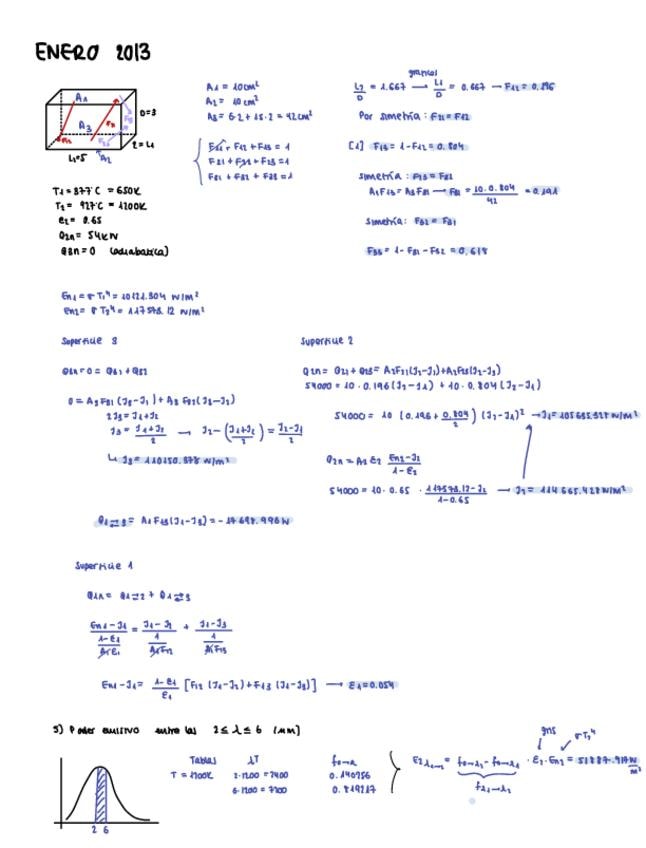 ENERO 2013
A1
A3
A2
L1=5
D=3
2=L2
A1 = 10cm²
A2 = 10cm²
A3 = 6·2 + 15·2 = 42cm²
F11 + F12 + F13 = 1
F21 + F22 + F23 = 1
F31 + F32 + F33 = 1
T1 = 377°C = 650K
T2 = 927°C = 1200K
ε2 = 0.65
Q2n = 54KW
Q3n = 0 (adiabatica)
graficos
L2/D = 1.667 → L1/D = 0.667 → F12 = 0.196
Por simetría: F21 = F12
[1] F13 = 1 - F12 = 0.804
simetría: F13 = F23
A1F13 = A3F31 → F31 = 10·0.804/42 = 0.191
simetría: F32 = F31
F33 = 1 - F31 - F32 = 0.618
En1 = σ T1⁴ = 10121.304 W/m²
En2 = σ T2⁴ = 117573.12 W/m²
Superficie 3
Q3n = 0 = Q31 + Q32
0 = A3 F31 (J3 - J1) + A3 F32 (J3 - J2)
2J3 = J1 + J2
J3 = (J1+J2)/2 → J2 - ((J1+J2)/2) = (J2-J1)/2
↳ J3 = 110150.378 W/m²
Superficie 2
Q2n = Q21 + Q23 = A2F21(J2-J1) + A2F23(J2-J3)
54000 = 10·0.196 (J2-J1) + 10·0.804 (J2-J3)
54000 = 10 (0.196 + 0.804/2) (J2-J1) → J1 = 105635.328 W/m²
Q2n = A2 ε2 (En2-J2)/(1-ε2)
54000 = 10·0.65 · (117573.12-J2)/(1-0.65) → J2 = 114665.428 W/m²
Q1⇄3 = A1 F13 (J1-J3) = -17698.996 W
Superficie 1
Q1n = Q1⇄2 + Q1⇄3
(En1-J1)/((1-ε1)/(A1ε1)) = (J1-J2)/(1/(A1F12)) + (J1-J3)/(1/(A1F13))
En1 - J1 = (1-ε1)/ε1 [F12 (J1-J2) + F13 (J1-J3)] → ε1 = 0.054
5) Poder emisivo entre las 2 ≤ λ ≤ 6 (μm)
2 6
Tablas λT f0→λ
T = 1200K 2·1200 = 2400 0.140256
6·1200 = 7200 0.819217
gris σT2⁴
E2λ1→2 = f0→λ2 - f0→λ1 · ε2 · En2 =
fλ1→λ2